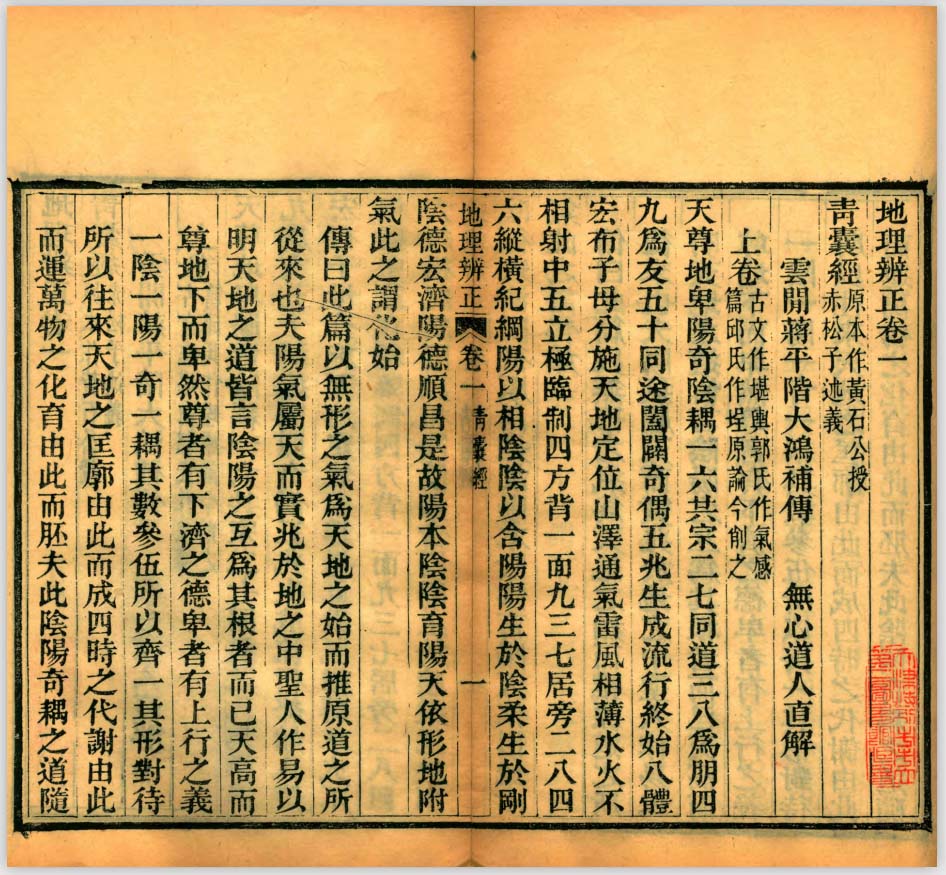 地理辨正卷一
靑囊經原本作黃石公授
赤松子述義
雲間蔣平階大鴻補傳　無心道人直解
上卷古文作堪輿郭氏作氣感
篇邱氏作埕原論今削之
天尊地卑陽奇陰耦一六共宗二七同道三八爲朋四
九爲友五十同途闔闢奇偶五兆生成流行終始八體
宏布子母分施天地定位山澤通氣雷風相薄水火不
相射中五立極臨制四方背一面九三七居旁二八四
六縱橫紀綱陽以相陰陰以含陽陽生於陰柔生於剛
地理辨正　卷一　靑囊經　一
陰德宏濟陽德順昌是故陽本陰陰育陽天依形地附
氣此之謂化始
傳曰此篇以無形之氣爲天地之始而推原道之所
從來也夫陽氣屬天而實兆於地之中聖人作易以
明天地之道皆言陰陽之互爲其根者而已天高而
尊地下而卑然尊者有下濟之德卑者有上行之義
一陰一陽一奇一耦其數參伍所以齊一其形對待
所以往來天地之匡廓由此而成四時之代謝由此
而運萬物之化育由此而胚夫此陰陽奇耦之道隨